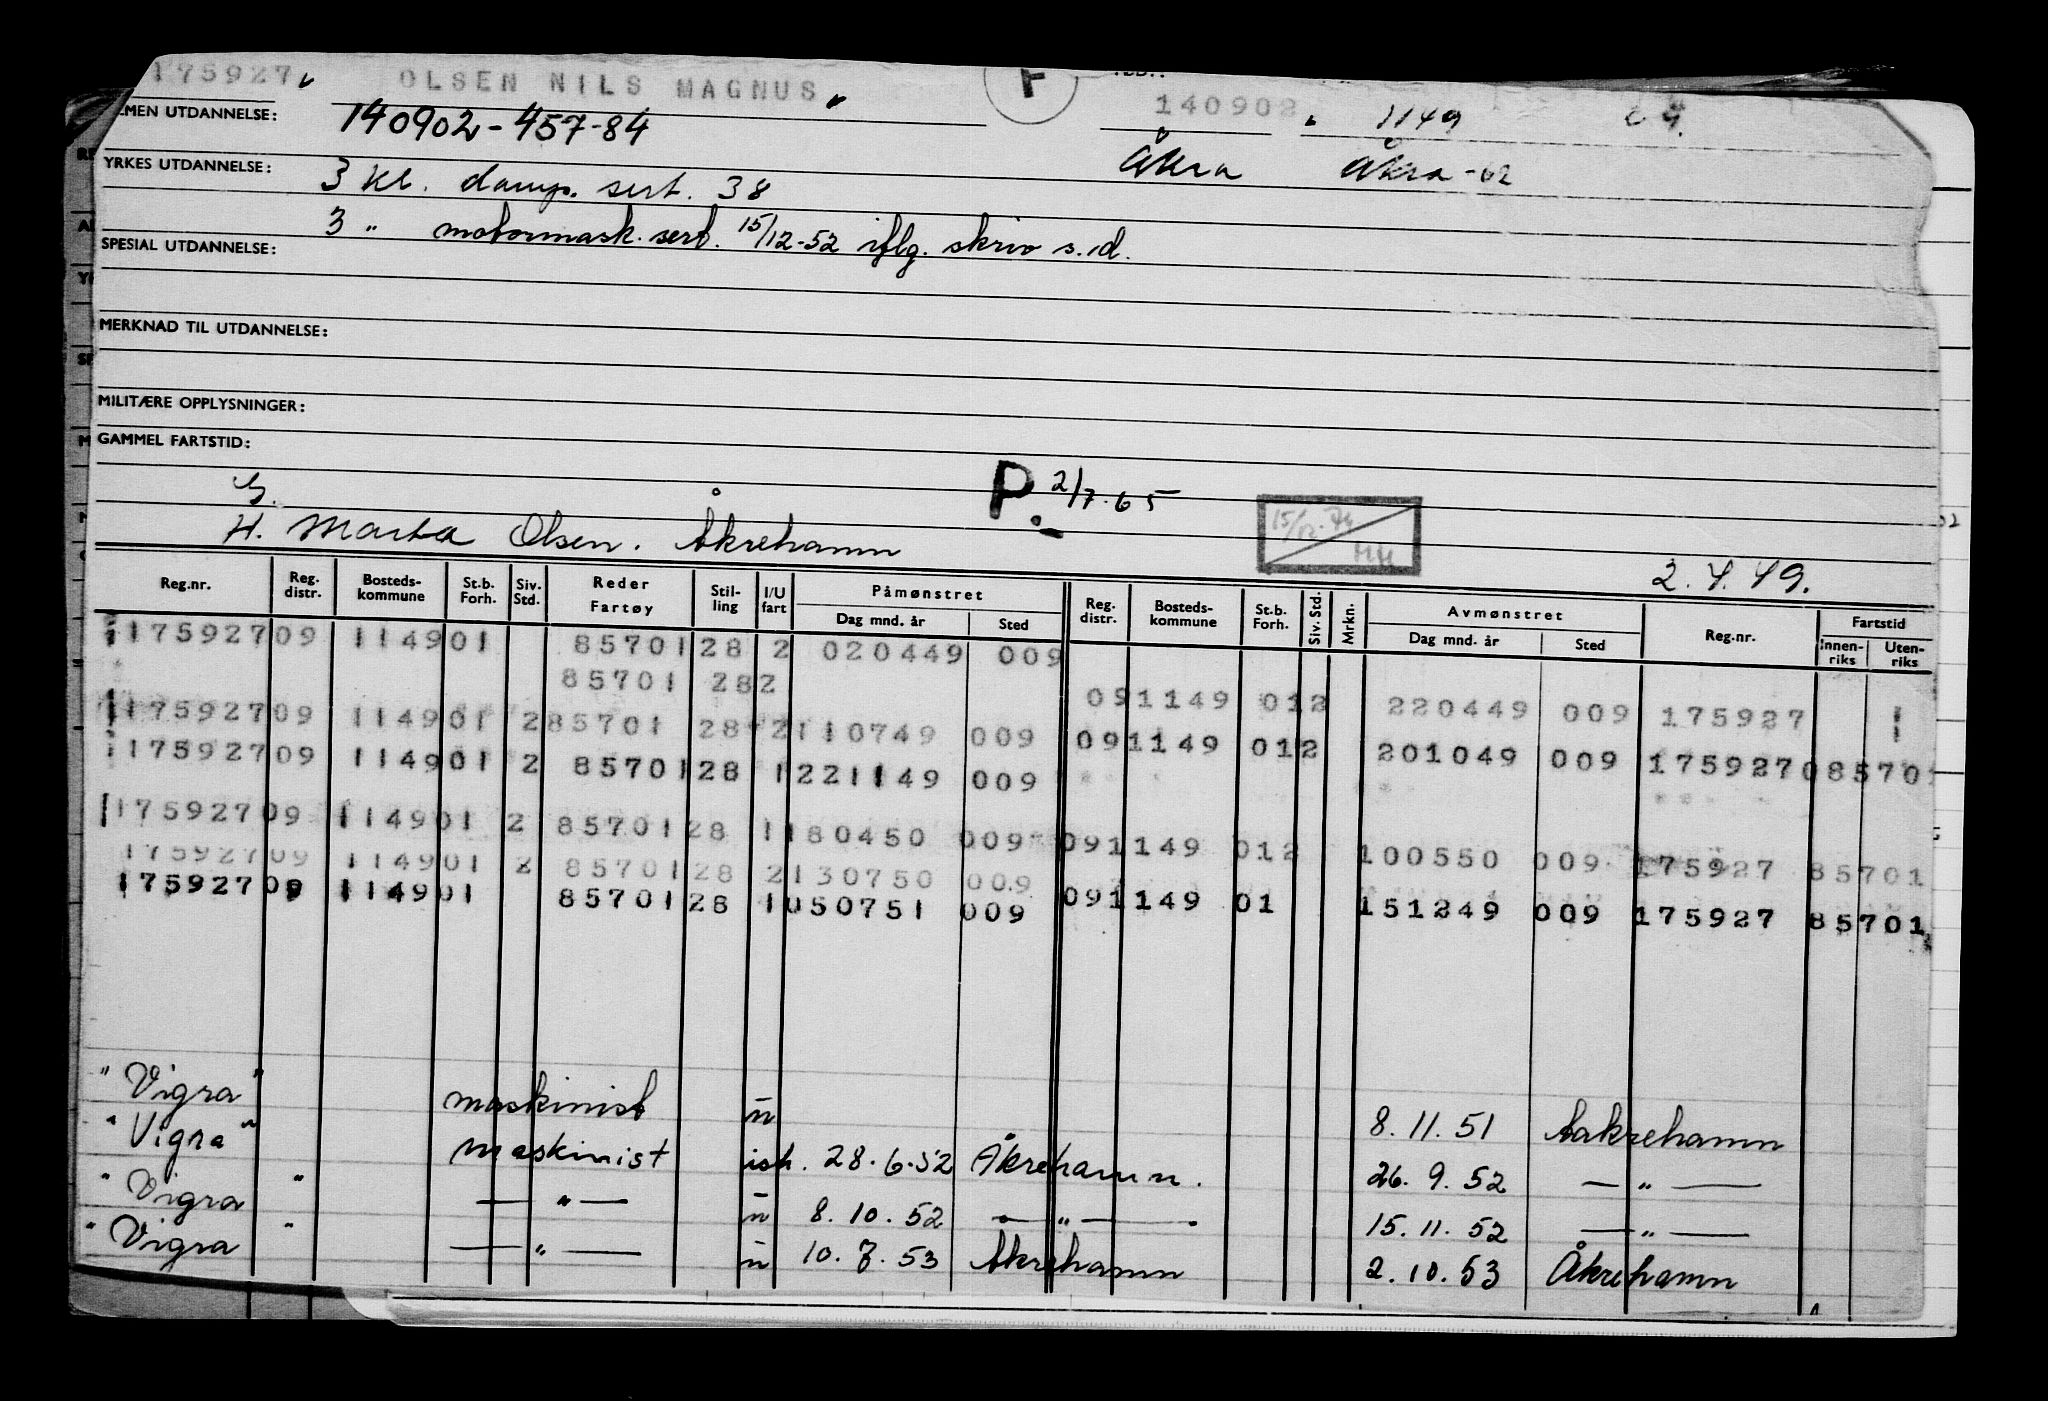 175927 OLSEN NILS MAGNUS F 140902 1149
MEN UTDANNELSE: 140902-457-84 Åkra Åkra -62
YRKES UTDANNELSE: 3 kl. damp. sert. 38
3 " motormask. sert. 15/12-52 iflg. skriv s.d.
SPESIAL UTDANNELSE:
MERKNAD TIL UTDANNELSE:
MILITÆRE OPPLYSNINGER:
GAMMEL FARTSTID:
G. P. 2/7.65
H. Marta Olsen. Åkrehamn 2.4.49.
Reg.nr. Reg. distr. Bosteds-kommune St.b. Forh. Siv. Std. Reder Fartøy Stil-ling I/U fart Påmønstret Dag mnd. år Sted Reg. distr. Bosteds-kommune St.b. Forh. Siv. Std. Mrkn. Avmønstret Dag mnd. år Sted Reg.nr. Fartstid Innen-riks Uten-riks
175927 09 1149 01 85701 28 2 020449 009
85701 28 2 09 1149 01 2 220449 009 175927
175927 09 1149 01 2 85701 28 2 110749 009 09 1149 01 2 201049 009 175927 085701
175927 09 1149 01 2 85701 28 1 221149 009
175927 09 1149 01 2 85701 28 1 180450 009 09 1149 01 2 100550 009 175927 85701
175927 09 1149 01 2 85701 28 2 130750 009
175927 09 1149 01 85701 28 1 050751 009 09 1149 01 151249 009 175927 85701
"Vigra" maskinist u 8.11.51 Aakrehamn
"Vigra" maskinist ish. 28.6.52 Åkrehamn. 26.9.52 — " —
"Vigra " — " — u 8.10.52 — " — 15.11.52 — " —
"Vigra " — " — u 10.7.53 Åkrehamn 2.10.53 Åkrehamn